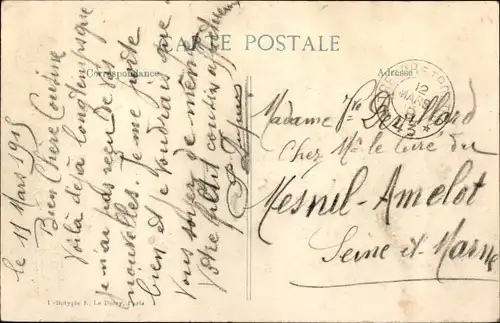 CARTE POSTALE
Correspondance
Adresse
le 11 Mars 1915
Bien Chère Cousine
Voilà déjà longtemps que
je n'ai pas reçu de vos
nouvelles. Je me porte
bien et je voudrais que
vous soyez de même
Votre petit cousin affectueux
12
MARS
Madame Vve
Chez Mr le Curé du
Mesnil-Amelot
Seine et Marne
Phototypie E. Le Deley, Paris